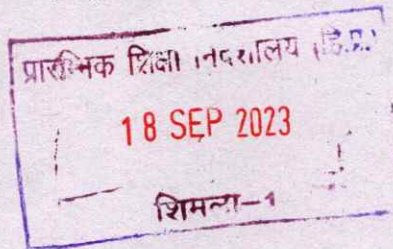 प्रारम्भिक शिक्षा निदेशालय (हि.प्र.)
18 SEP 2023
शिमला-1